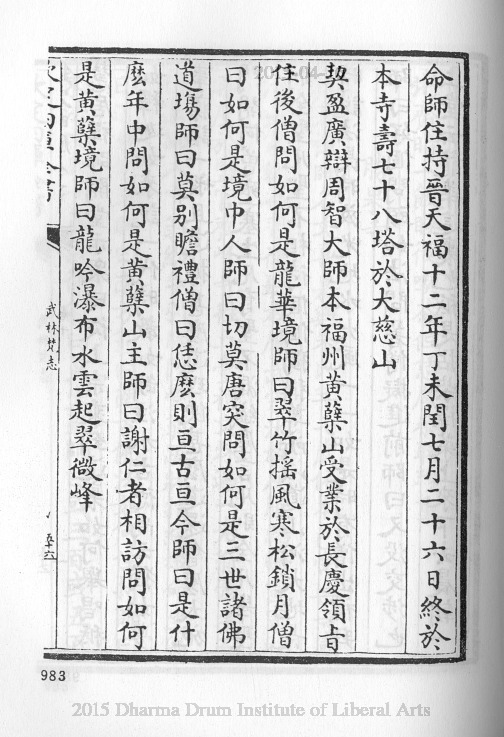 命師住持晉天福十二年丁未閏七月二十六日終於
本寺壽七十八塔於大慈山
契盈廣辯周智大師本福州黃蘗山受業於長慶領㫖
住後僧問如何是龍華境師曰翠竹摇風寒松鎖月僧
曰如何是境巾人師曰切莫唐突問如何是三世諸佛
道塲師曰莫别瞻禮僧曰恁麽則亘古亘今師曰是什
麽年中問如何是黃蘗山主師曰謝仁者相訪問如何
是黃蘗境師曰龍吟瀑布水雲起翠微峰
武林梵志
983
2015 Dharma Drum Institute of Liberal Arts